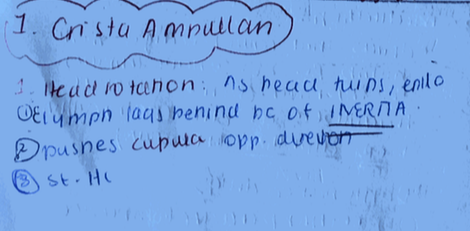 1. Crista Ampullan
1. Head rotation: As head turns, endo
① lymph lags behind bc of INERTIA.
② pushes cupula opp. direction
③ st. HC